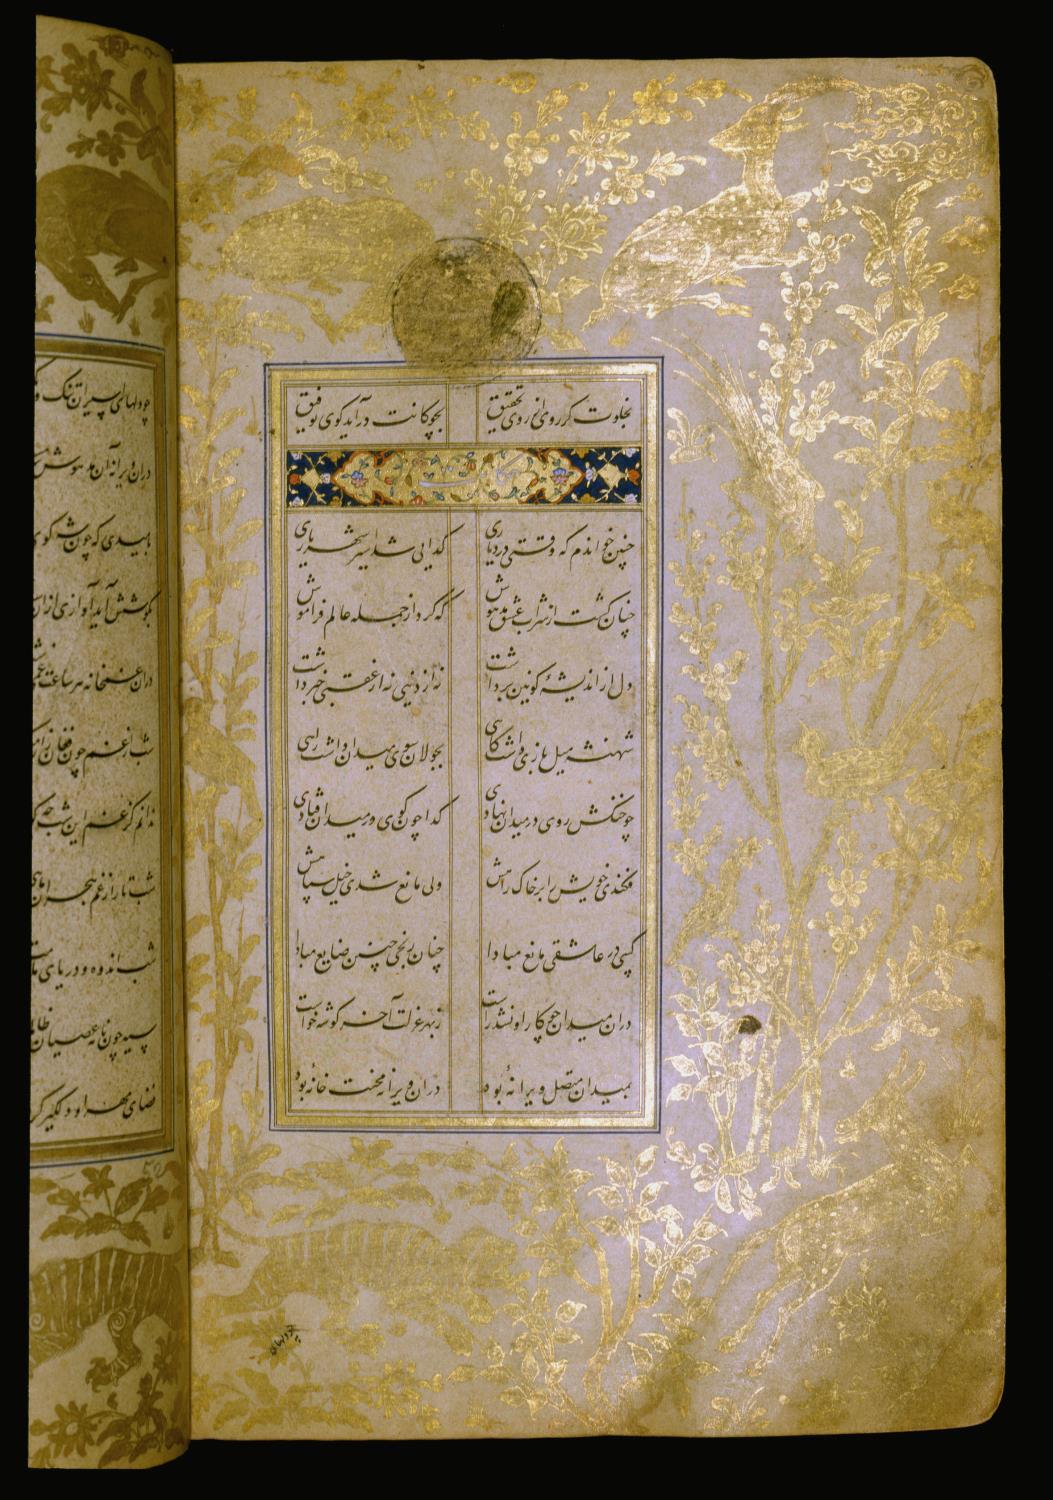 بخلوت کر روی از روی تحقیق
بچوکانت در آید کوی توفیق
حکایت
چنین خواندم که وقتی در دیاری
کدایی شد اسیر شهریاری
چنان کشت از شراب عشق مدهوش
که کرد از جمله عالم فراموش
دل از اندیشهٔ کونین برداشت
نه از دنیی نه از عقبی خبر داشت
شهنشه میل بازی داشت کاهی
بجولان سوی میدان داشت راهی
چو خنکش روی در میدان نهادی
کدا چون کوی در میدان فتادی
فکندی خویش را بر خاک راهش
ولی مانع شدی خیل سپاهش
کسی در عاشقی مانع مبادا
چنان رنجی چنین ضایع مبادا
در ان میدان چو کار او نشد راست
ز بهر عزلت آخر کوشه خواست
بمیدان متصل ویرانهٔ بود
در ان ویرانه محنت خانه بود
چو دلهای اسیران تنک و
در ان ویرانه آن مدهوش
بامیدی که چون شه کوی
بکوشش آید آوازی از ان
در ان غمخانه هر ساعت
شب از غم چون فغان
ندانم کز غم این شب چه
شب تار از غم هجران
شب اندوه و دریای
سیه چون نامه عصیان
فضای بهر او دلکیر
چو دلهای